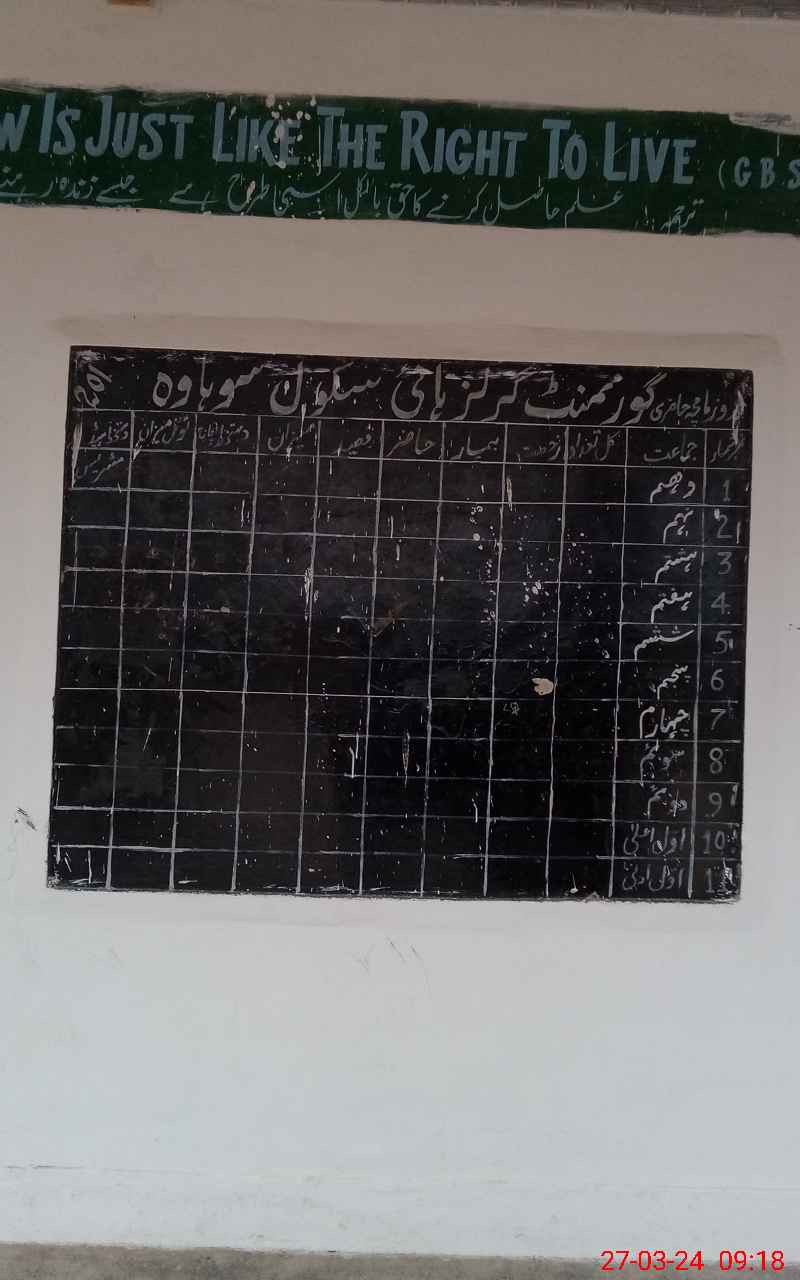 W IS JUST LIKE THE RIGHT TO LIVE (GBS
ترجمہ: علم حاصل کرنے کا حق بالکل اسی طرح ہے جیسے زندہ رہنے
روزنامچہ حاضری گورنمنٹ گرلز ہائی سکول سوہاوہ 201
نمبر شمار جماعت کل تعداد رخصت بیمار حاضر فیصد میزان دستخط ٹوٹل میزان دستخط ہیڈ مسٹریس
1 دہم
2 نہم
3 ہشتم
4 ہفتم
5 ششم
6 پنجم
7 چہارم
8 سوئم
9 دوئم
10 اول اعلیٰ
1 اول ادنیٰ
27-03-24 09:18